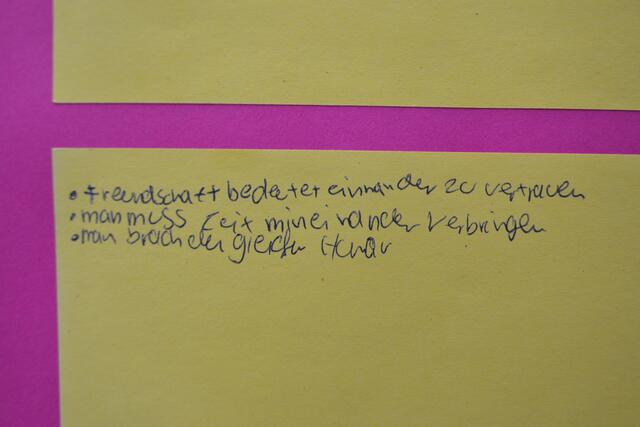 • Freundschaft bedeutet einnander zu vertrauen
• man muss Zeit mineinander verbringen
• man brauch den gleichen Humor